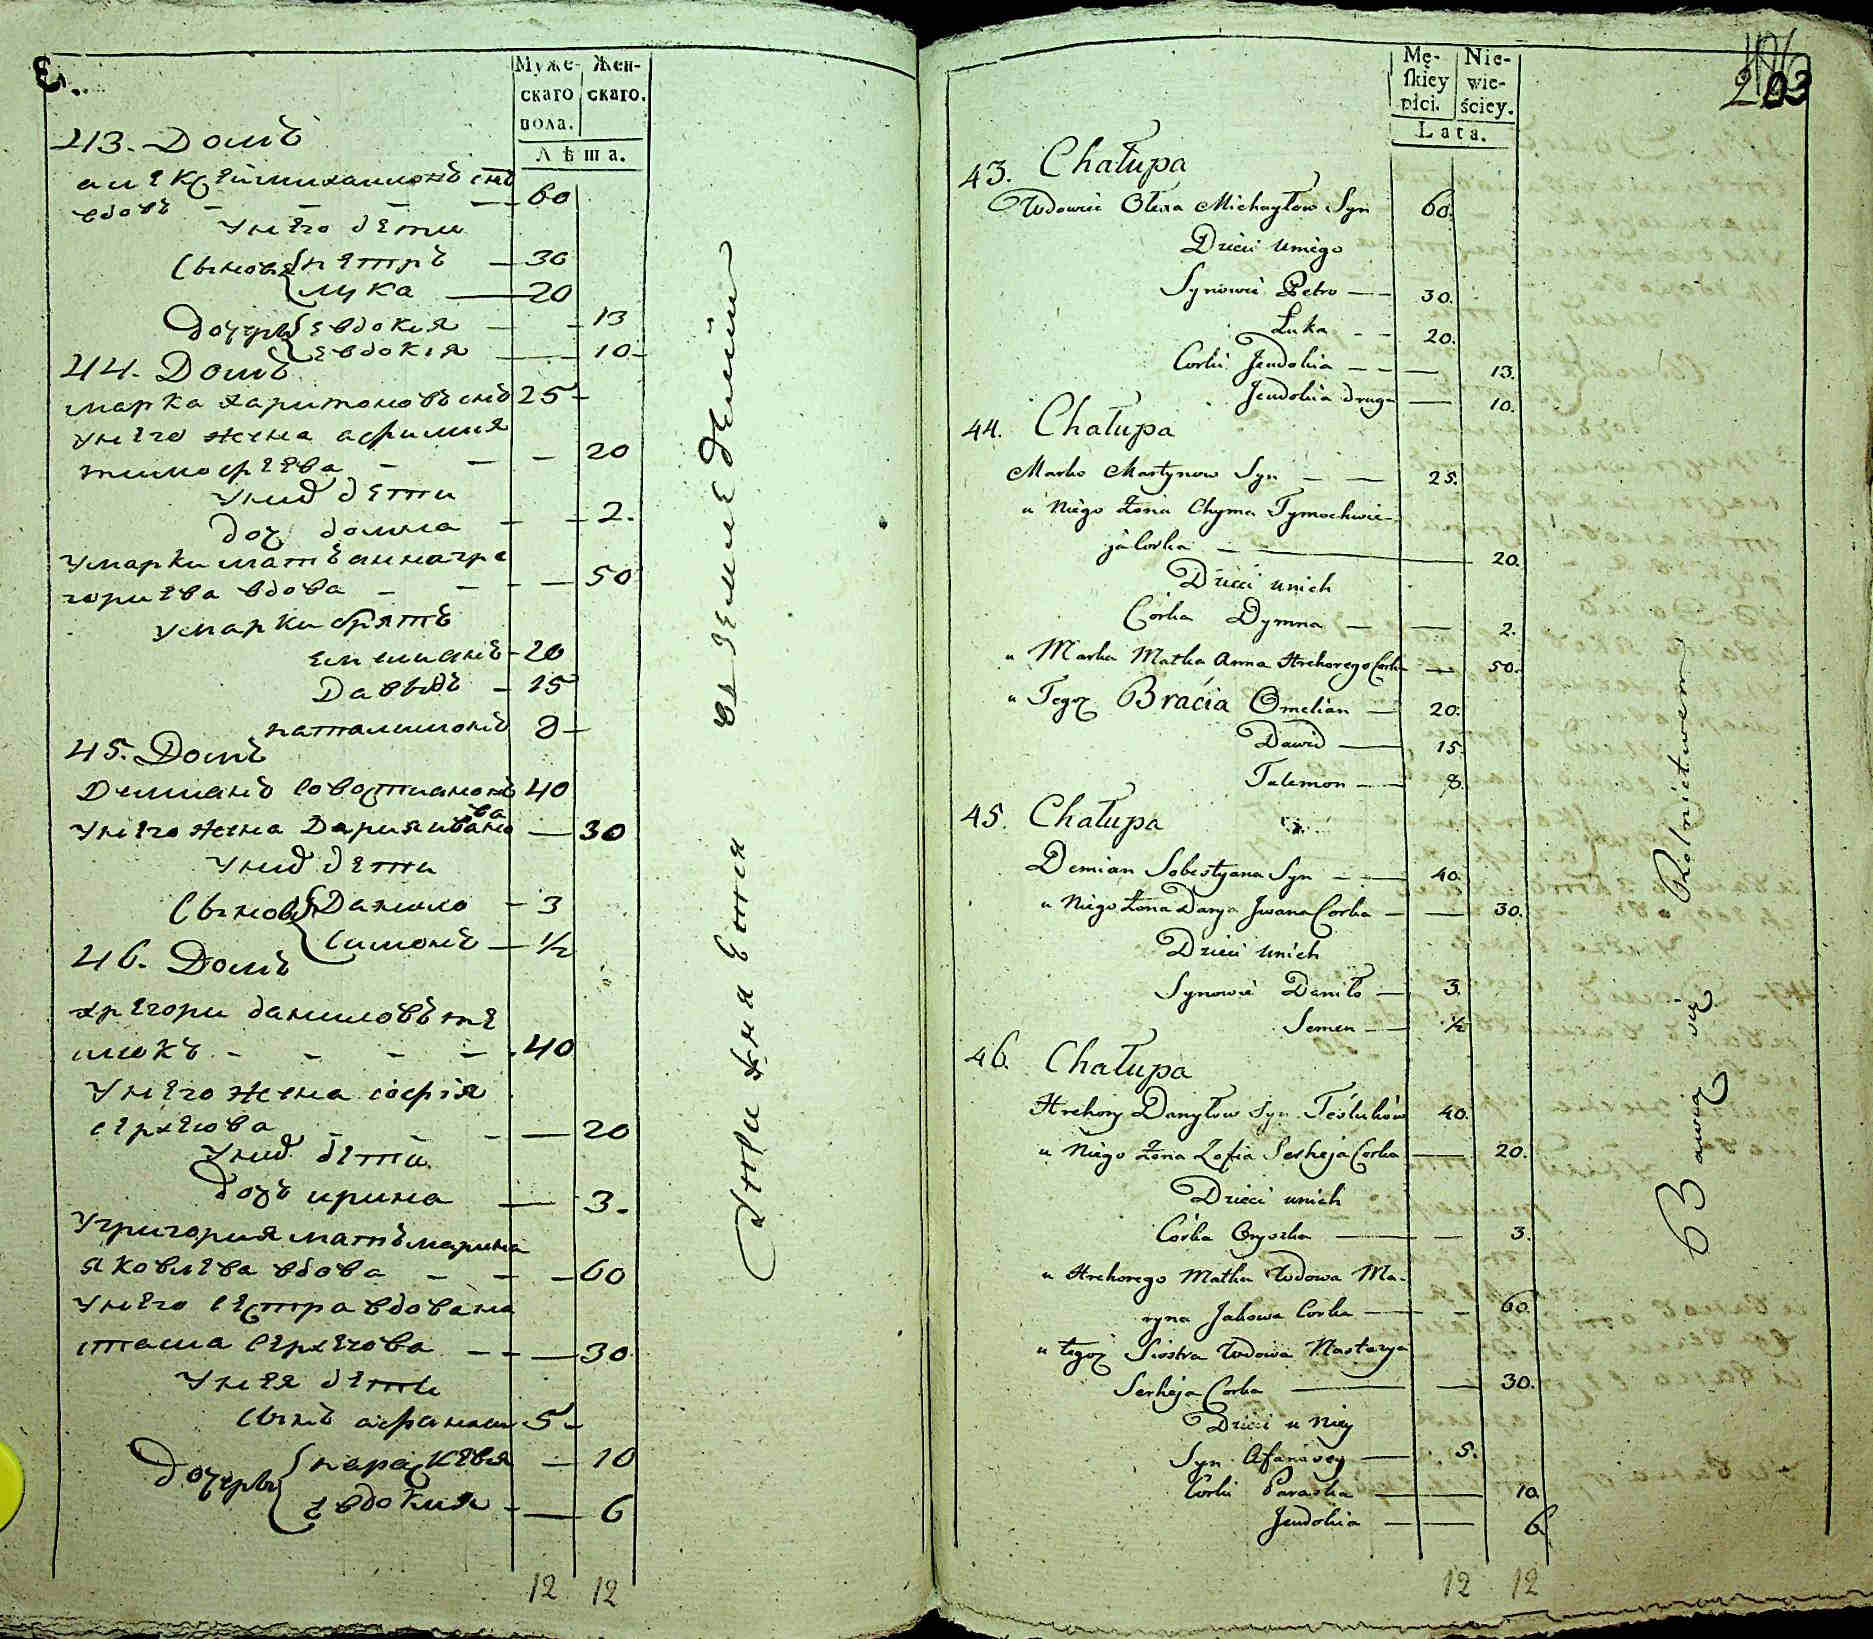 Муже- Жен-
скаго скаго.
пола.
Лѣта.
43. Домъ
алексѣй михаиловъ снъ
вдовъ - - - - 60
у него дети
сыновя петръ - 30
лука - 20
дочери евдокия - 13
евдокія - 10
44. Домъ
марка харитоновъ снъ 25
у него жена афимия
тимофеева - - - 20
у них дети
доч домна - - 2.
у марки мать анна гри
гориева вдова - - - 50
у марки братъ
емелианъ - 20
Давыдъ - 15
паталимонъ 8
45. Домъ
Демианъ совостиановъ 40
у него жена Дария ивано
ва - 30
у них дети
сыновя Данило - 3
Симонъ - 1/2
46. Домъ
хрегори даниловъ те
слюкъ - - - - 40
у него жена софія
сергеева - - - 20
у них дети
дочь ирина - 3.
у григория мать марина
яковлева вдова - - - 60
у него сестра вдова на
стасия сергеева - - - 30
у нея дети
сынъ афанаси 5
дочери параскевия - 10
евдокия - 6
12 12
въ земледелии
203
Mę- Nie-
ſkiey wie-
płci. ściey.
Lata.
43. Chałupa
Wdowiec Olexa Michayłow Syn 60.
Dzieci u niego
Synowie Petro - - 30.
Łuka - - 20.
Corki Jewdokia - - - 13.
Jewdokia druga - 10.
44. Chałupa
Marko Martynow Syn - - 25.
u Niego Żona Chyma Tymochwie-
ja Corka - - 20.
Dzieci u nich
Córka Dymna - - 2.
u Marka Matka Anna Hrehorego Corka - 50.
u Tegoż Bracia Omelian - 20.
Dawid - 15.
Talemon - 8.
45. Chałupa
Demian Sobestyana Syn - - 40.
u Niego Żona Darya Jwana Corka - - 30.
Dzieci u nich
Synowie Daniło - 3.
Semen - 1/2
46. Chałupa
Hrehory Danyłow Syn Teślukow 40.
u Niego Żona Zofia Serheja Corka - 20.
Dzieci u nich
Córka Oryszka - - 3.
u Hrehorego Matka Wdowa Ma-
ryna Jakowa Corka - - 60.
u tegoż Siostra Wdowa Nastazya
Serheja Corka - - 30.
Dzieci u Niey
Syn Afanasey - 5.
Corki Paraska - - 10
Jewdokia - - 6
12 12
Bawią się Rolnictwem